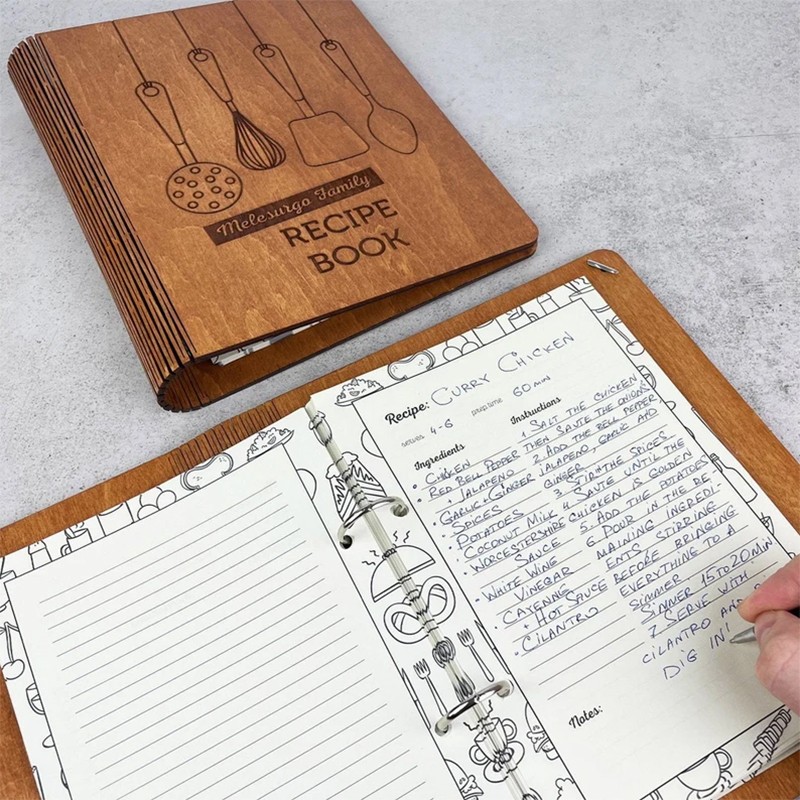 Melesurgo Family
RECIPE
BOOK
Recipe: CURRY CHICKEN
serves 4-6 prep time 60 min
Ingredients
Instructions
• CHICKEN
• RED BELL PEPPER
+ JALAPENO
• GARLIC + GINGER
• SPICES
• POTATOES
• COCONUT MILK
• WORCESTERSHIRE
SAUCE
• WHITE WINE
VINEGAR
• CAYENNE
+ HOT SAUCE
• CILANTRO
1 SALT THE CHICKEN
THEN SAUTE THE ONIONS
2 ADD THE BELL PEPPER,
JALAPENO, GARLIC AND
GINGER,
3 STIR THE SPICES
4 SAUTE UNTIL THE
CHICKEN IS GOLDEN
5 ADD THE POTATOES
6 POUR IN THE RE-
MAINING INGREDI-
ENTS STIRRING
BEFORE BRINGING
EVERYTHING TO A
SIMMER
SIMMER 15 TO 20 MIN
7 SERVE WITH
CILANTRO AND
DIG IN!
Notes: